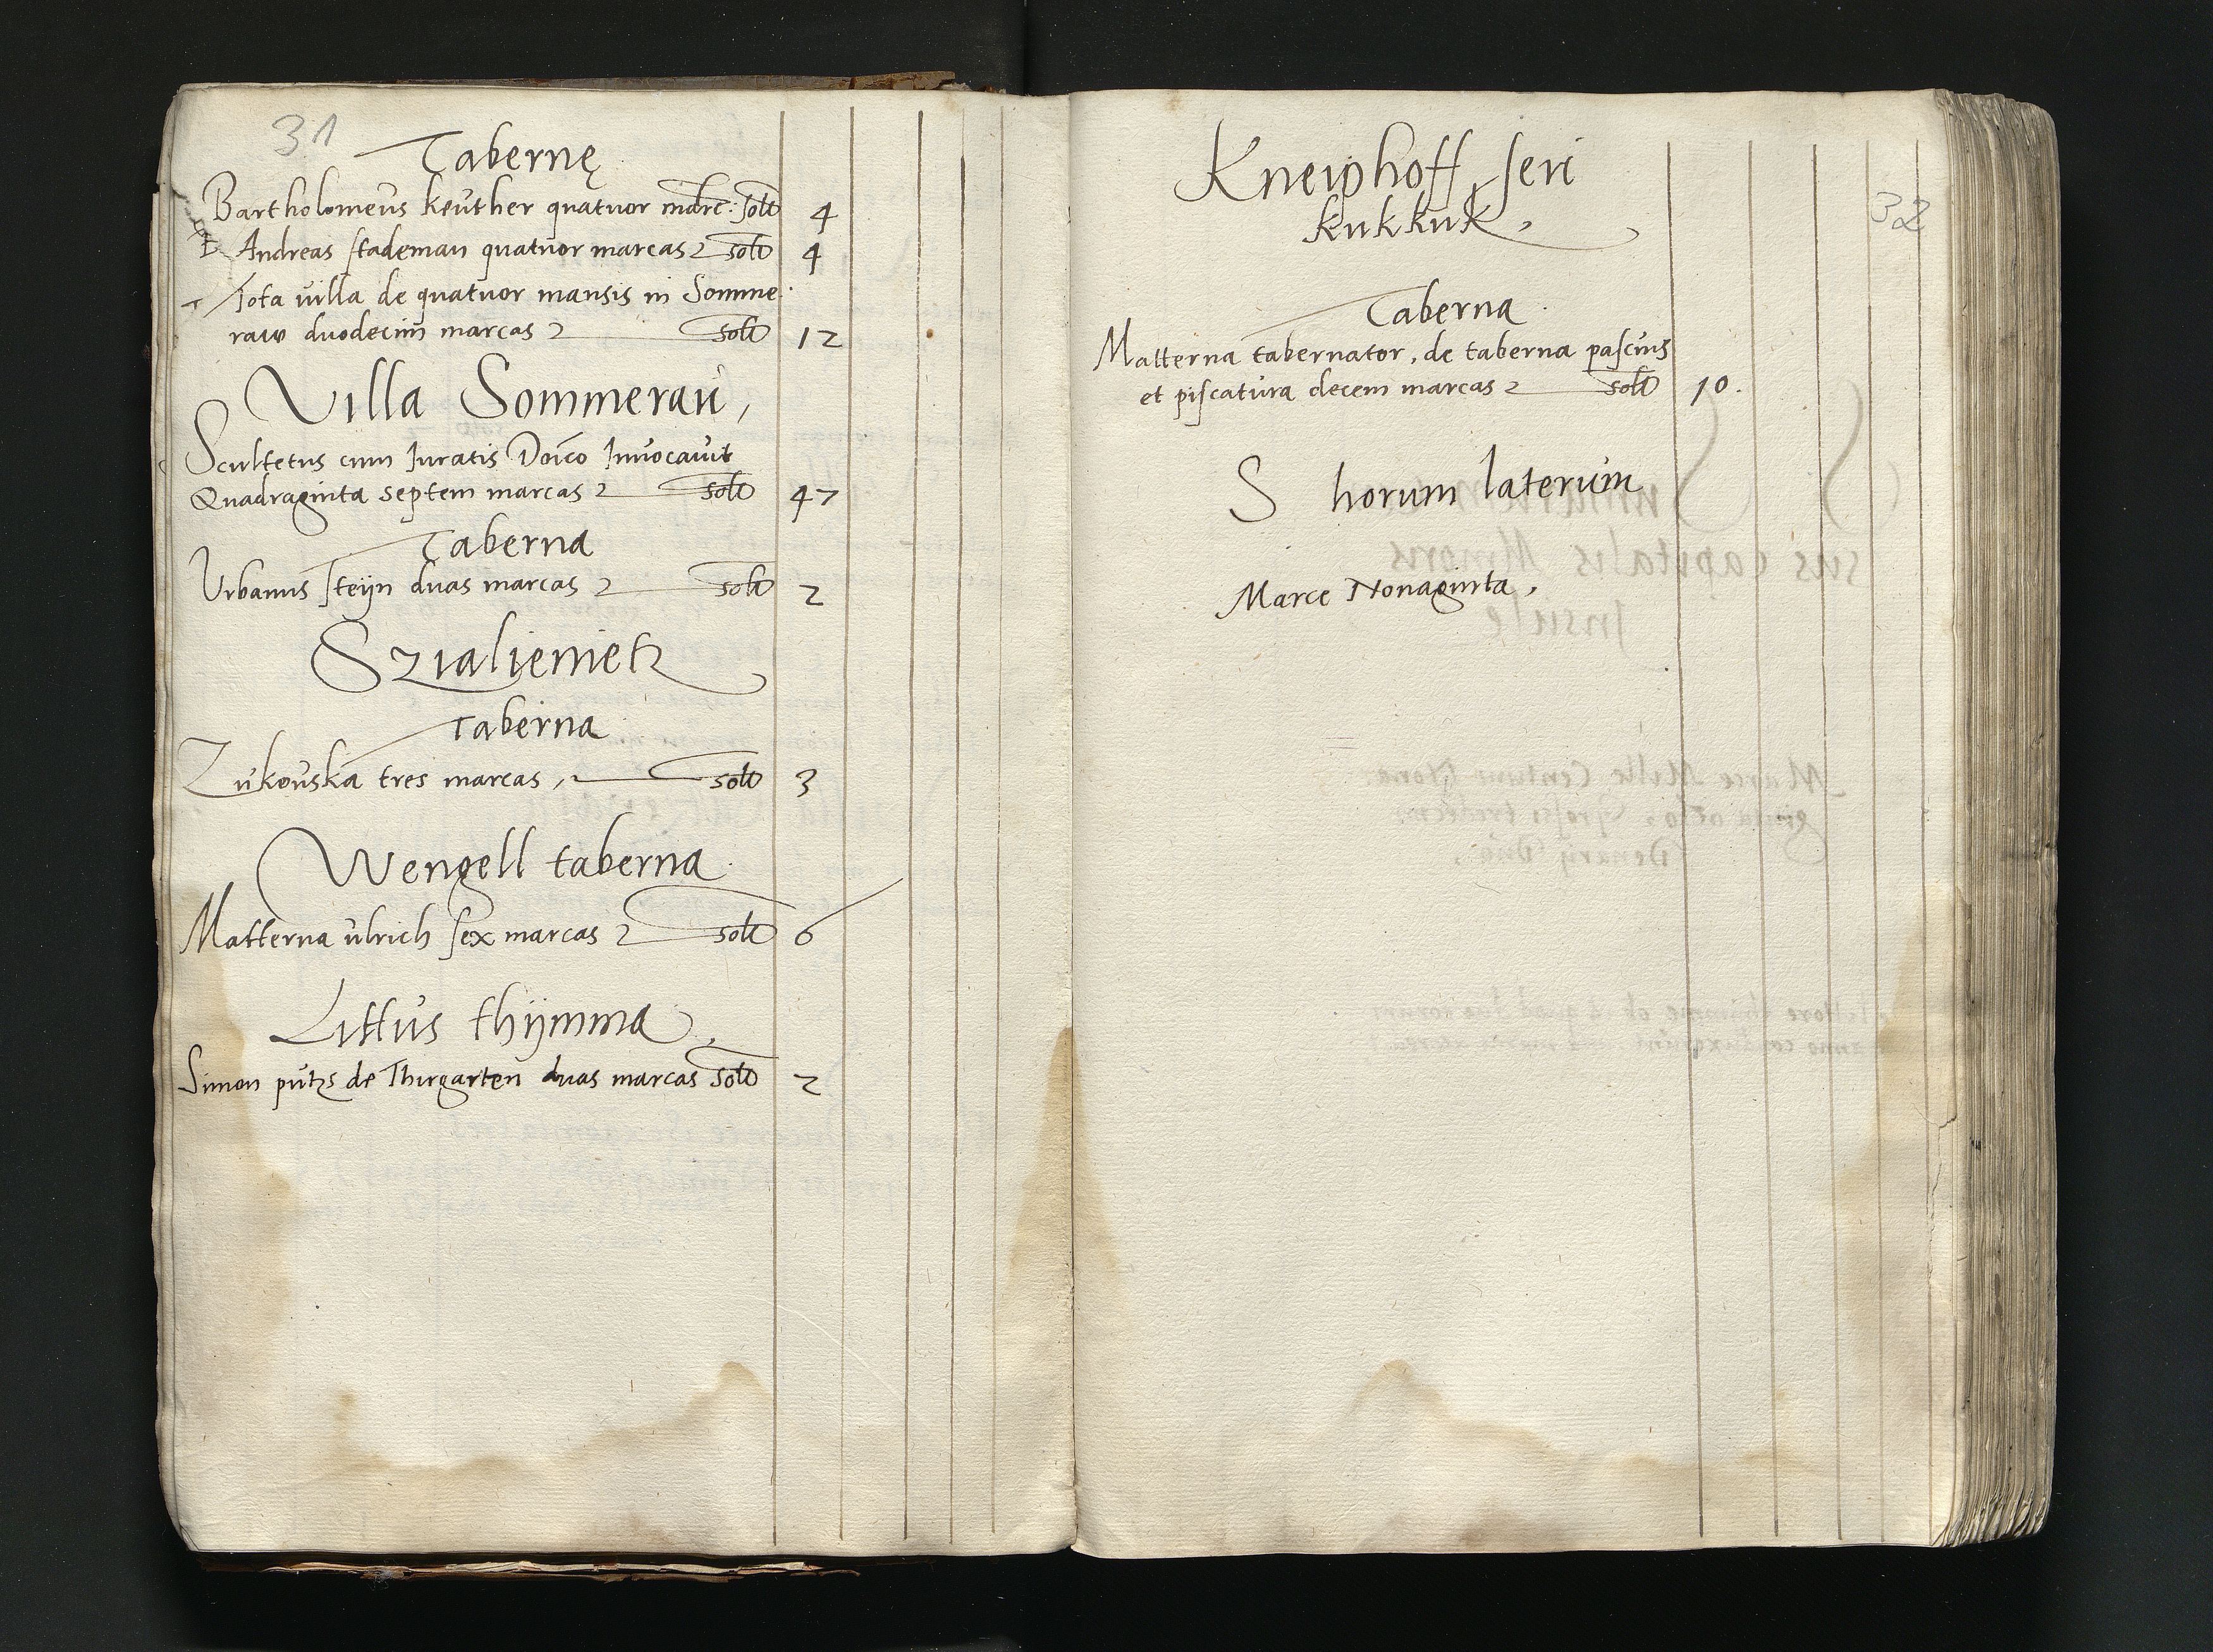 31
Tabernę
Bartholomeus keuther quatuor marc: solt 4
Andreas stademan quatuor marcas solt 4
Tota villa de quatuor mansis in Somme
raw duodecim marcas solt 12
Villa Sommerau,
Scultetus cum Juratis Doīco Invocavit
Quadraginta septem marcas solt 47
Taberna
Urbanus steijn duas marcas solt 2
Taberna
Zukouska tres marcas, solt 3
Wengell taberna
Matterna ulrich sex marcas solt 6
Littus thijmma
Simon putzs de Thirgarten duas marcas solt 2
32
Kneiphoff seu
kukkuk,
Taberna
Matterna tabernator, de taberna pascuis
et piscatura decem marcas solt 10.
S horum laterum
Marce Nonaginta,